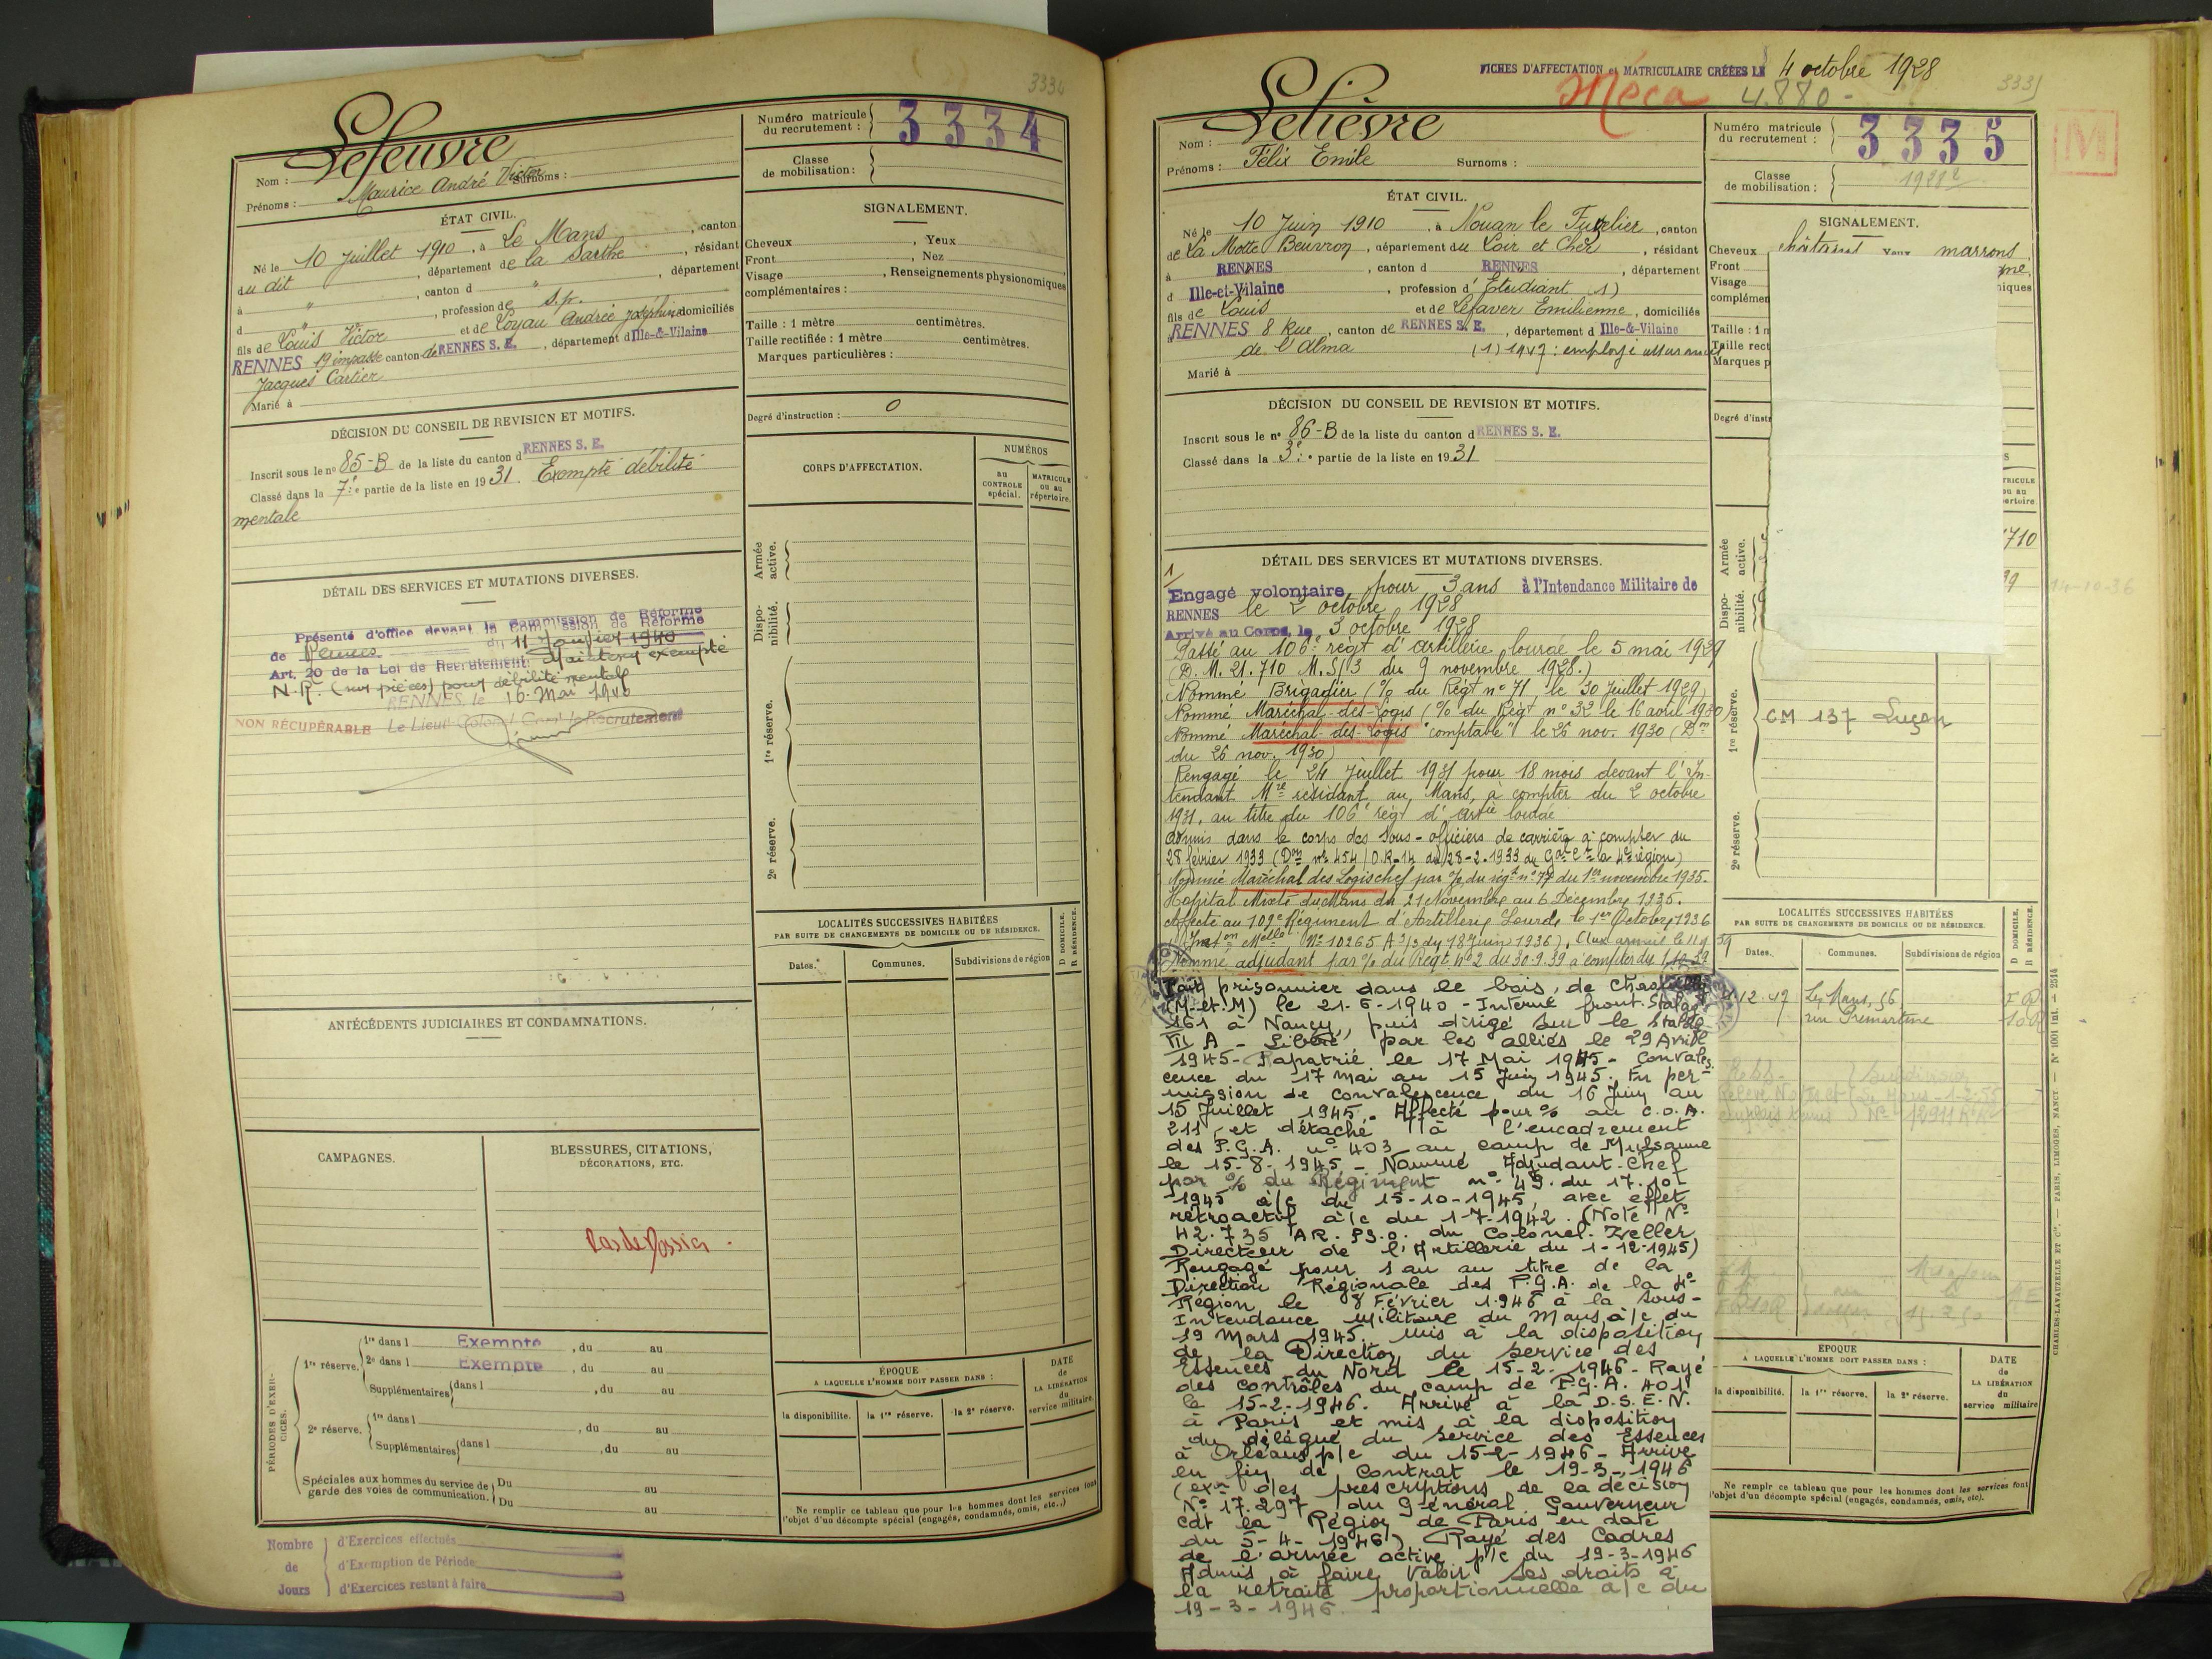 3334
Lefeuvre
Nom :
Prénoms : Maurice André Victor Surnoms :
Numéro matricule du recrutement : 3334
Classe de mobilisation :
ÉTAT CIVIL.
Né le 10 Juillet 1910, à Le Mans, canton
du dit, département de la Sarthe, résidant
à " , canton d " , département
d " , profession de s.p.
fils de Louis Victor et de Loyau Andrée Joséphine domiciliés
RENNES 19 impasse canton de RENNES S. E., département d Ille-&-Vilaine
Jacques Cartier
Marié à
SIGNALEMENT.
Cheveux , Yeux
Front , Nez
Visage , Renseignements physionomiques
complémentaires :
Taille : 1 mètre centimètres.
Taille rectifiée : 1 mètre centimètres.
Marques particulières :
Degré d'instruction : 0
DÉCISION DU CONSEIL DE REVISION ET MOTIFS.
Inscrit sous le n° 85-B de la liste du canton d RENNES S. E.
Classé dans la 7e partie de la liste en 1931. Exempté débilité
mentale
DÉTAIL DES SERVICES ET MUTATIONS DIVERSES.
Présenté d'office devant la Commission de Réforme
de Rennes du 11 Janvier 1940
Art. 20 de la Loi de Recrutement. Maintenu exempté
N.R. (sur pièces) pour débilité mentale
RENNES, le 16 Mai 1940
NON RÉCUPÉRABLE Le Lieut-Colonel Comt le Recrutement
CORPS D'AFFECTATION.
NUMÉROS
au CONTROLE spécial.
MATRICULE ou au répertoire.
Armée active.
Disponibilité.
1re réserve.
2e réserve.
ANTÉCÉDENTS JUDICIAIRES ET CONDAMNATIONS.
CAMPAGNES.
BLESSURES, CITATIONS,
DÉCORATIONS, ETC.
Pas de Dossier
LOCALITÉS SUCCESSIVES HABITÉES
PAR SUITE DE CHANGEMENTS DE DOMICILE OU DE RÉSIDENCE.
Dates. Communes. Subdivisions de région
D DOMICILE.
R RÉSIDENCE.
PÉRIODES D'EXERCICES.
1re réserve. 1re dans l Exempté, du au
2e dans l Exempté, du au
Supplémentaires dans l , du au
2e réserve. 1re dans l , du au
Supplémentaires dans l , du au
Spéciales aux hommes du service de garde des voies de communication. Du au
Du au
ÉPOQUE
A LAQUELLE L'HOMME DOIT PASSER DANS :
la disponibilité. la 1re réserve. la 2e réserve.
DATE de LA LIBÉRATION du service militaire.
Ne remplir ce tableau que pour les hommes dont les services font
l'objet d'un décompte spécial (engagés, condamnés, omis, etc.,)
Nombre de Jours
d'Exercices effectués
d'Exemption de Période
d'Exercices restant à faire
FICHES D'AFFECTATION et MATRICULAIRE CRÉÉES LE 4 octobre 1928
Méca 4.880 -
3335
M
Lelièvre
Nom :
Prénoms : Félix Emile Surnoms :
Numéro matricule du recrutement : 3335
Classe de mobilisation : 1928 2
ÉTAT CIVIL.
Né le 10 Juin 1910, à Nouan le Fuzelier, canton
de La Motte Beuvron, département du Loir et Cher, résidant
à RENNES, canton d RENNES, département
d Ille-et-Vilaine, profession d'Etudiant (1)
fils de Louis et de Lefaver Emilienne, domiciliés
à RENNES 8 Rue, canton de RENNES S. E., département d Ille-&-Vilaine
de l'Alma (1) 1947 : employé assurances
Marié à
SIGNALEMENT.
Cheveux châtains Yeux marrons
Front
Visage
Taille : 1 m
Taille rect
Marques p
Degré d'inst
DÉCISION DU CONSEIL DE REVISION ET MOTIFS.
Inscrit sous le n° 86-B de la liste du canton d RENNES S. E.
Classé dans la 3e partie de la liste en 1931
DÉTAIL DES SERVICES ET MUTATIONS DIVERSES.
Engagé volontaire pour 3 ans à l'Intendance Militaire de
RENNES le 2 octobre 1928
Arrivé au Corps le 3 octobre 1928
Passé au 106e régt d'artillerie lourde le 5 mai 1929
(D.M. 21.710 M.S/3 du 9 novembre 1928.)
Nommé Brigadier (% du Régt n° 71, le 30 Juillet 1929)
Nommé Maréchal-des-Logis (% du Régt n° 32 le 16 avril 1930)
Nommé Maréchal-des-Logis "comptable" le 26 nov. 1930 (Don
du 26 nov. 1930)
Rengagé le 24 Juillet 1931 pour 18 mois devant l'In-
tendant Mre résidant au Mans, à compter du 2 octobre
1931, au titre du 106e régt d'artie lourde
Admis dans le corps des sous-officiers de carrière à compter du
28 février 1933 (Don n° 454/O.R-14 du 28-2-1933 du Gal Ct la 4e région)
Nommé Maréchal des Logis chef par % du régt n° 77 du 1er novembre 1935.
Hopital Mixte du Mans du 21 Novembre au 6 Décembre 1935.
Affecté au 109e Régiment d'Artillerie Lourde le 1er Octobre 1936
(Inston Melle N° 10265 A3/3 du 18 Juin 1936). Aux armées le 11 9 39
Nommé adjudant par % du Régt n° 2 du 30.9.39 à compter du 1.10.39
Fait prisonnier dans le bois, de
(M-et-M) le 21-6-1940 - Interné front-Stalag
161 à Nancy, puis dirigé sur le Stalag
VII A - Libéré par les alliés le 29 Avril
1945 - Rapatrié le 17 Mai 1945 - Convales
cence du 17 mai au 15 Juin 1945. En per-
mission de convalescence du 16 Juin au
15 Juillet 1945. Affecté pour % au C.O.A.
211, et détaché à l'encadrement
des P.G.A. n° 403 au camp de Mulsanne
le 15-8-1945 - Nommé Adjudant-Chef
par % du Régiment n° 49. du 17.10
1945 à/c du 15-10-1945, avec effet
rétroactif à/c du 1-7-1942. (Note N°
42.735 AR.PS.O. du Colonel Zeller
Directeur de l'Artillerie du 1-12-1945)
Rengagé pour 1 an au titre de la
Direction Régionale des P.G.A. de la 4e
Région le 8 Février 1946 à la Sous-
Intendance Militaire du Mans, à/c du
19 Mars 1945. Mis à la disposition
de la Direction du Service des
Essences du Nord le 15-2-1946 - Rayé
des contrôles du camp de P.G.A. 401
le 15-2-1946. Arrivé à la D.S.E.N.
à Paris et mis à la disposition
du délégué du Service des Essences
à Orléans p/c du 15-2-1946 - Arrive
en fin de Contrat le 19-3-1946
(exon des prescriptions de la décision
N° 17.297 du Général Gouverneur
Cdt la Région de Paris en date
du 5-4-1946) Rayé des Cadres
de l'armée active p/c du 19-3-1946
Admis à faire valoir ses droits à
la retraite proportionnelle à/c du
19-3-1946
Armée active.
710
Disponibilité.
14-10-36
1re réserve.
CM 137 Luçon
2e réserve.
LOCALITÉS SUCCESSIVES HABITÉES
PAR SUITE DE CHANGEMENTS DE DOMICILE OU DE RÉSIDENCE.
Dates. Communes. Subdivisions de région
D DOMICILE.
R RÉSIDENCE.
12.47 Le Mans, 56
rue Premartine
ÉPOQUE
A LAQUELLE L'HOMME DOIT PASSER DANS :
la disponibilité. la 1re réserve. la 2e réserve.
DATE de LA LIBÉRATION du service militaire
Ne remplir ce tableau que pour les hommes dont les services font
l'objet d'un décompte spécial (engagés, condamnés, omis, etc).
CHARLES-LAVAUZELLE ET Cie. — PARIS, LIMOGES, NANCY — N° 1001 int. — 2514